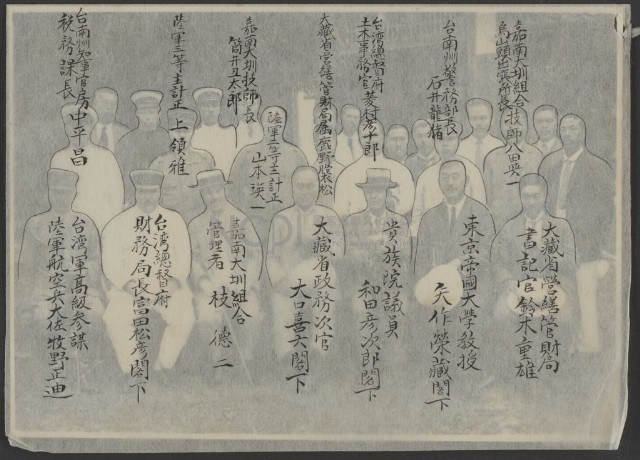 嘉南大圳組合技師
烏山頭出張所長
八田與一
台南州警務部長
石井龍猪
台湾總督府
土木事務官
菱村彥十郎
大藏省營繕管財局屬
鹿野
陸軍二等主計正
山本瑛一
嘉南大圳技師長
筒井丑太郎
陸軍三等主計正
上領雅
台南州知事官房
稅務課長
中平昌
大藏省營繕管財局
書記官鈴木重雄
東京帝國大學教授
矢作榮藏閣下
貴族院議員
和田彥次郎閣下
大藏省政務次官
大口喜六閣下
嘉南大圳組合
管理者 枝德二
台湾總督府
財務局長富田松彥閣下
台湾軍高級參謀
陸軍航空兵大佐牧野正迪